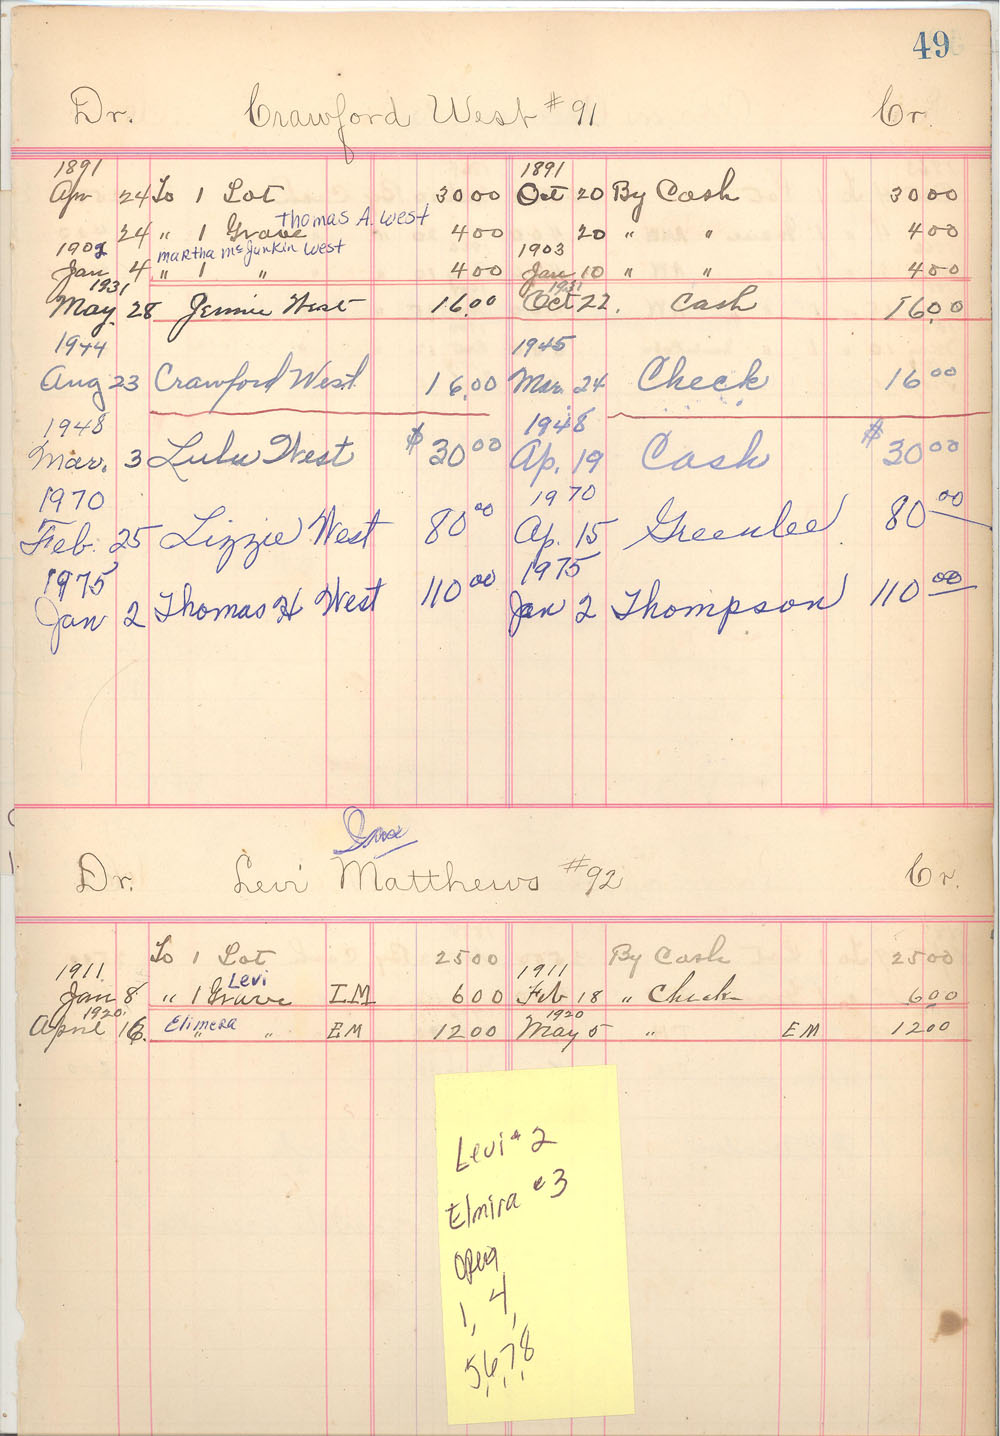 49
Dr. Crawford West #91 Cr.
1891 1891
Apr 24 To 1 Lot 30 00 Oct 20 By Cash 30 00
Thomas A. West
24 " 1 Grave 4 00 20 " " 4 00
1902 Martha McJunkin West 1903
Jan 4 " 1 " 4 00 Jan 10 " " 4 00
1931 1931
May 28 Jennie West 16.00 Oct 22. Cash 16.00
1944 1945
Aug 23 Crawford West 16.00 Mar. 24 Check 16 00
1948 1948
Mar. 3 Lulu West $30 00 Ap. 19 Cash $30 00
1970 1970
Feb. 25 Lizzie West 80 00 Ap. 15 Greenlee 80 00
1975 1975
Jan 2 Thomas H West 110 00 Jan 2 Thompson 110 00
Dr. Levi Matthews #92 Cr.
To 1 Lot 25 00 By Cash 25 00
1911 Levi 1911
Jan 8 " 1 Grave I M 6 00 Feb 18 " Check 6 00
1920 1920
April 16. Elimera " " E M 12 00 May 5 " E M 12 00
Levi # 2
Elmira # 3
open
1, 4,
5, 6, 7, 8